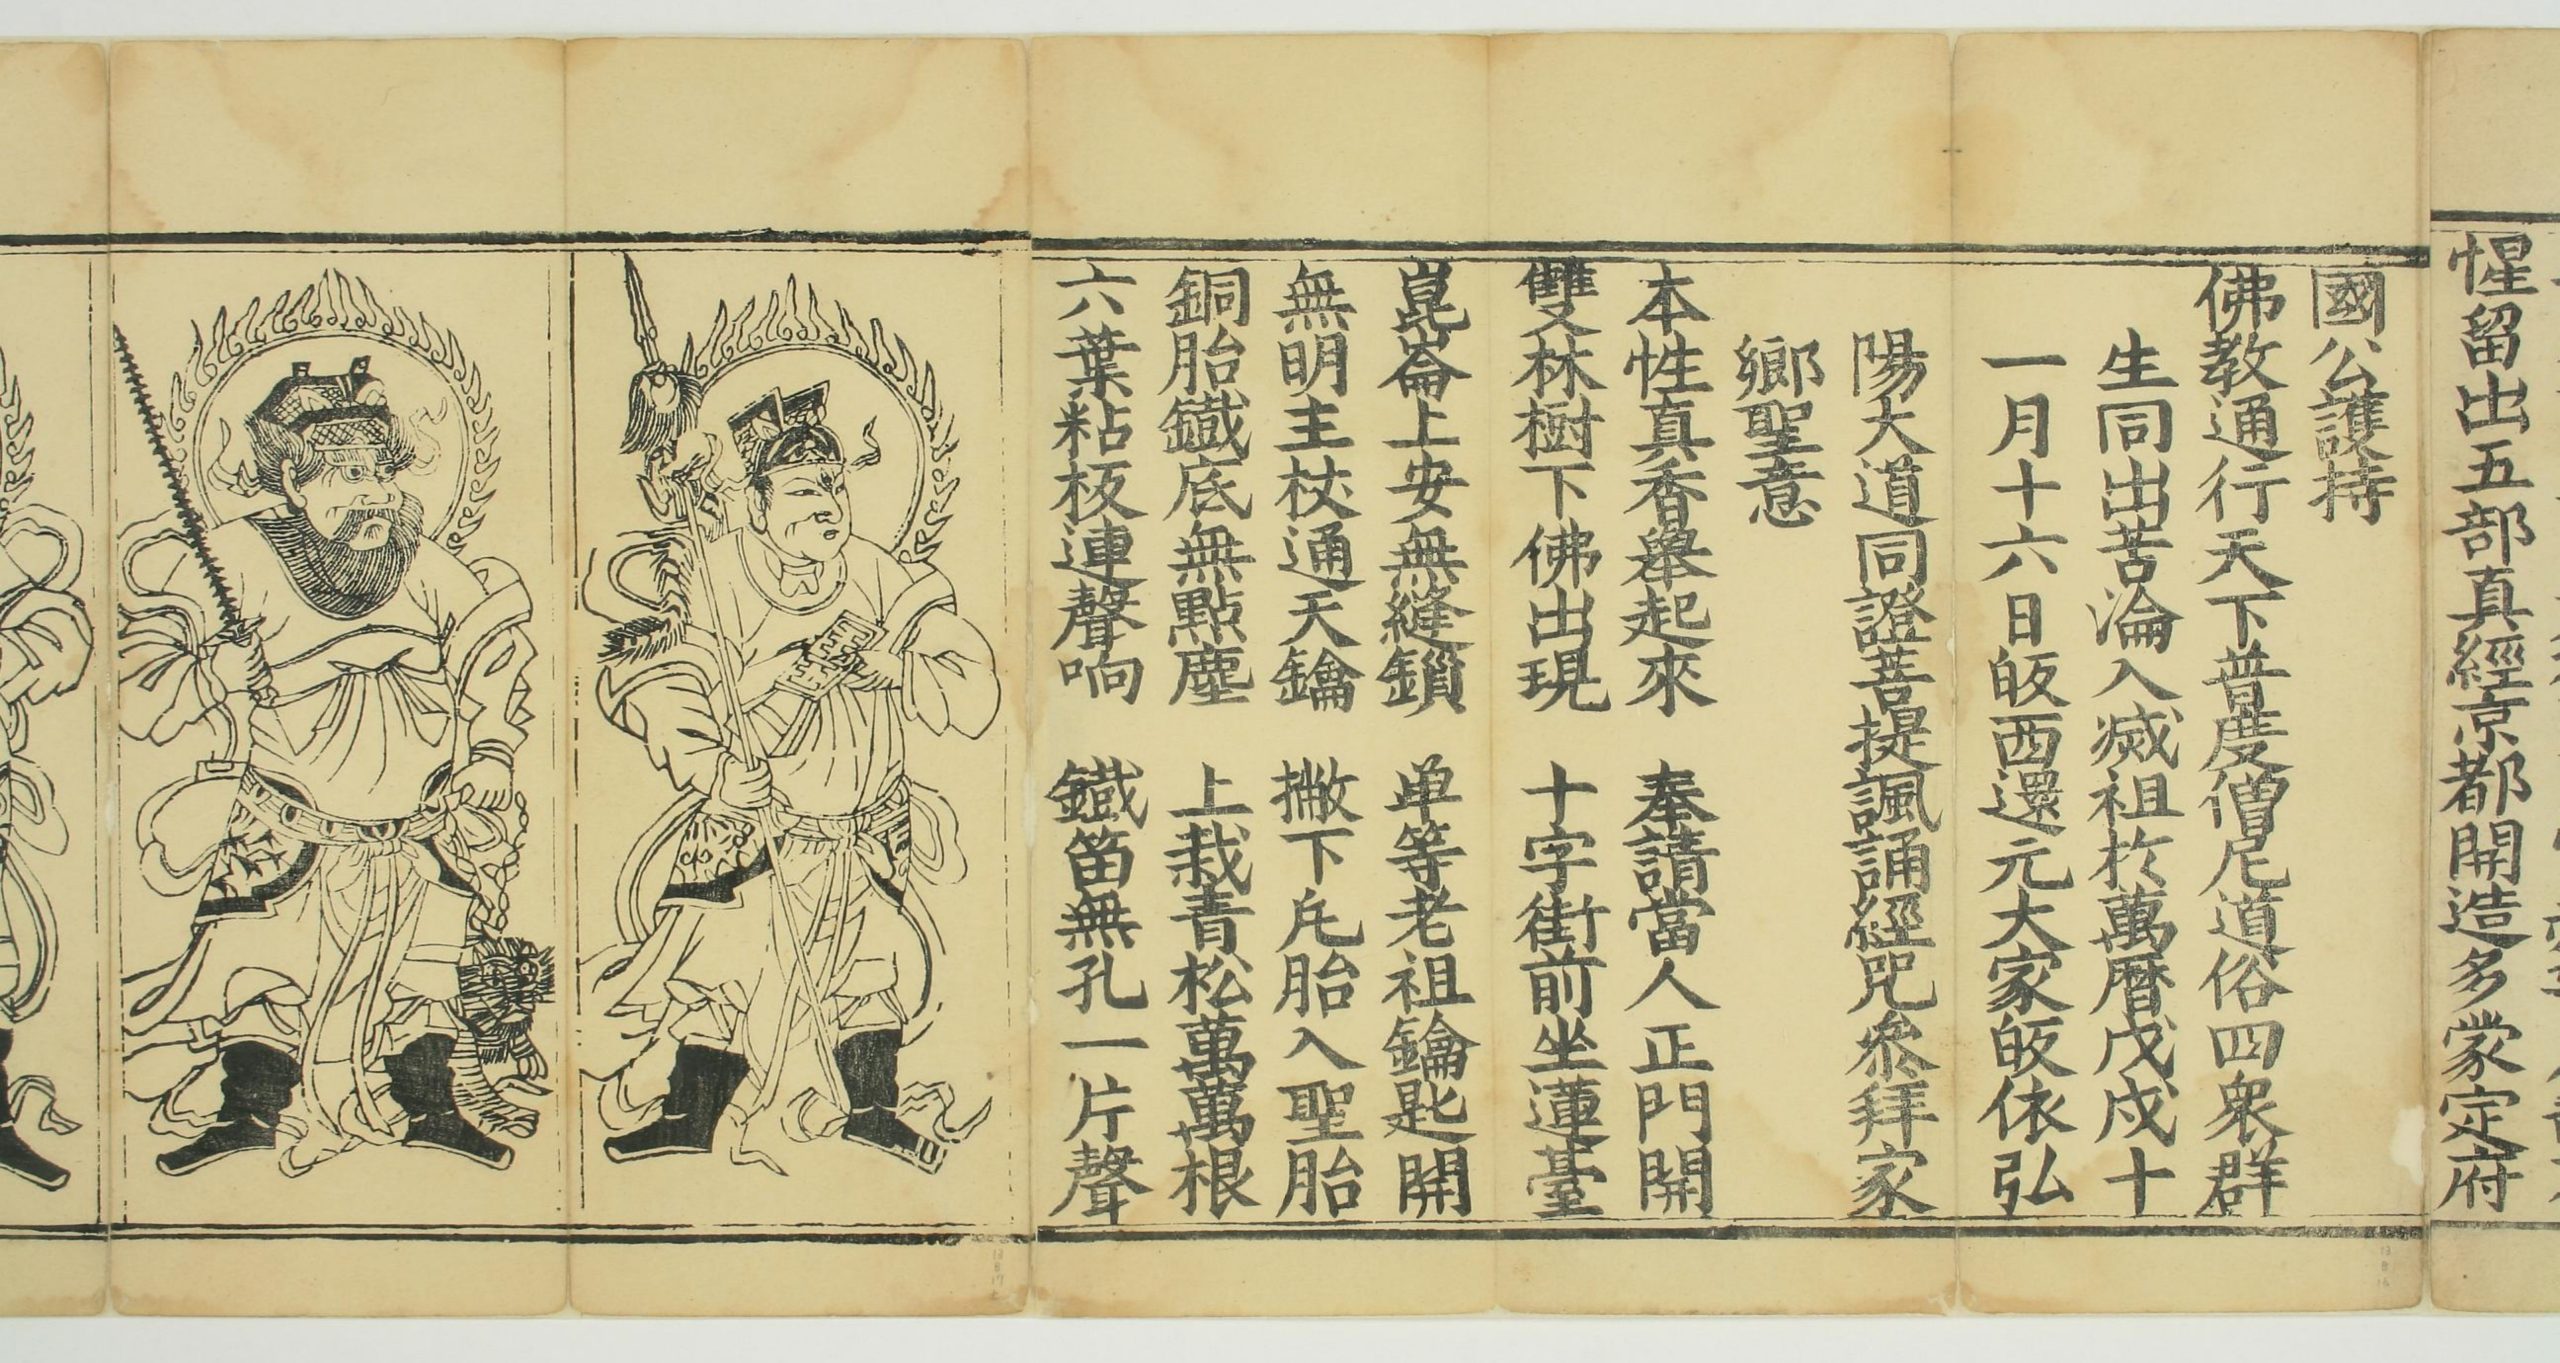 惺留出五部真經京都開造多蒙定府
國公護持
佛教通行天下普度僧尼道俗四衆群
生同出苦淪入滅祖於萬曆戊戌十
一月十六日皈西還元大家皈依弘
陽大道同證菩提諷誦經咒叅拜家
鄉聖意
本性真香舉起來　奉請當人正門開
雙林樹下佛出現　十字街前坐蓮臺
崑崙上安無縫鎖　单等老祖鑰匙開
無明主杖通天鑰　撇下凡胎入聖胎
銅胎鐵底無點塵　上栽青松萬萬根
六葉粘板連聲响　鐵笛無孔一片聲